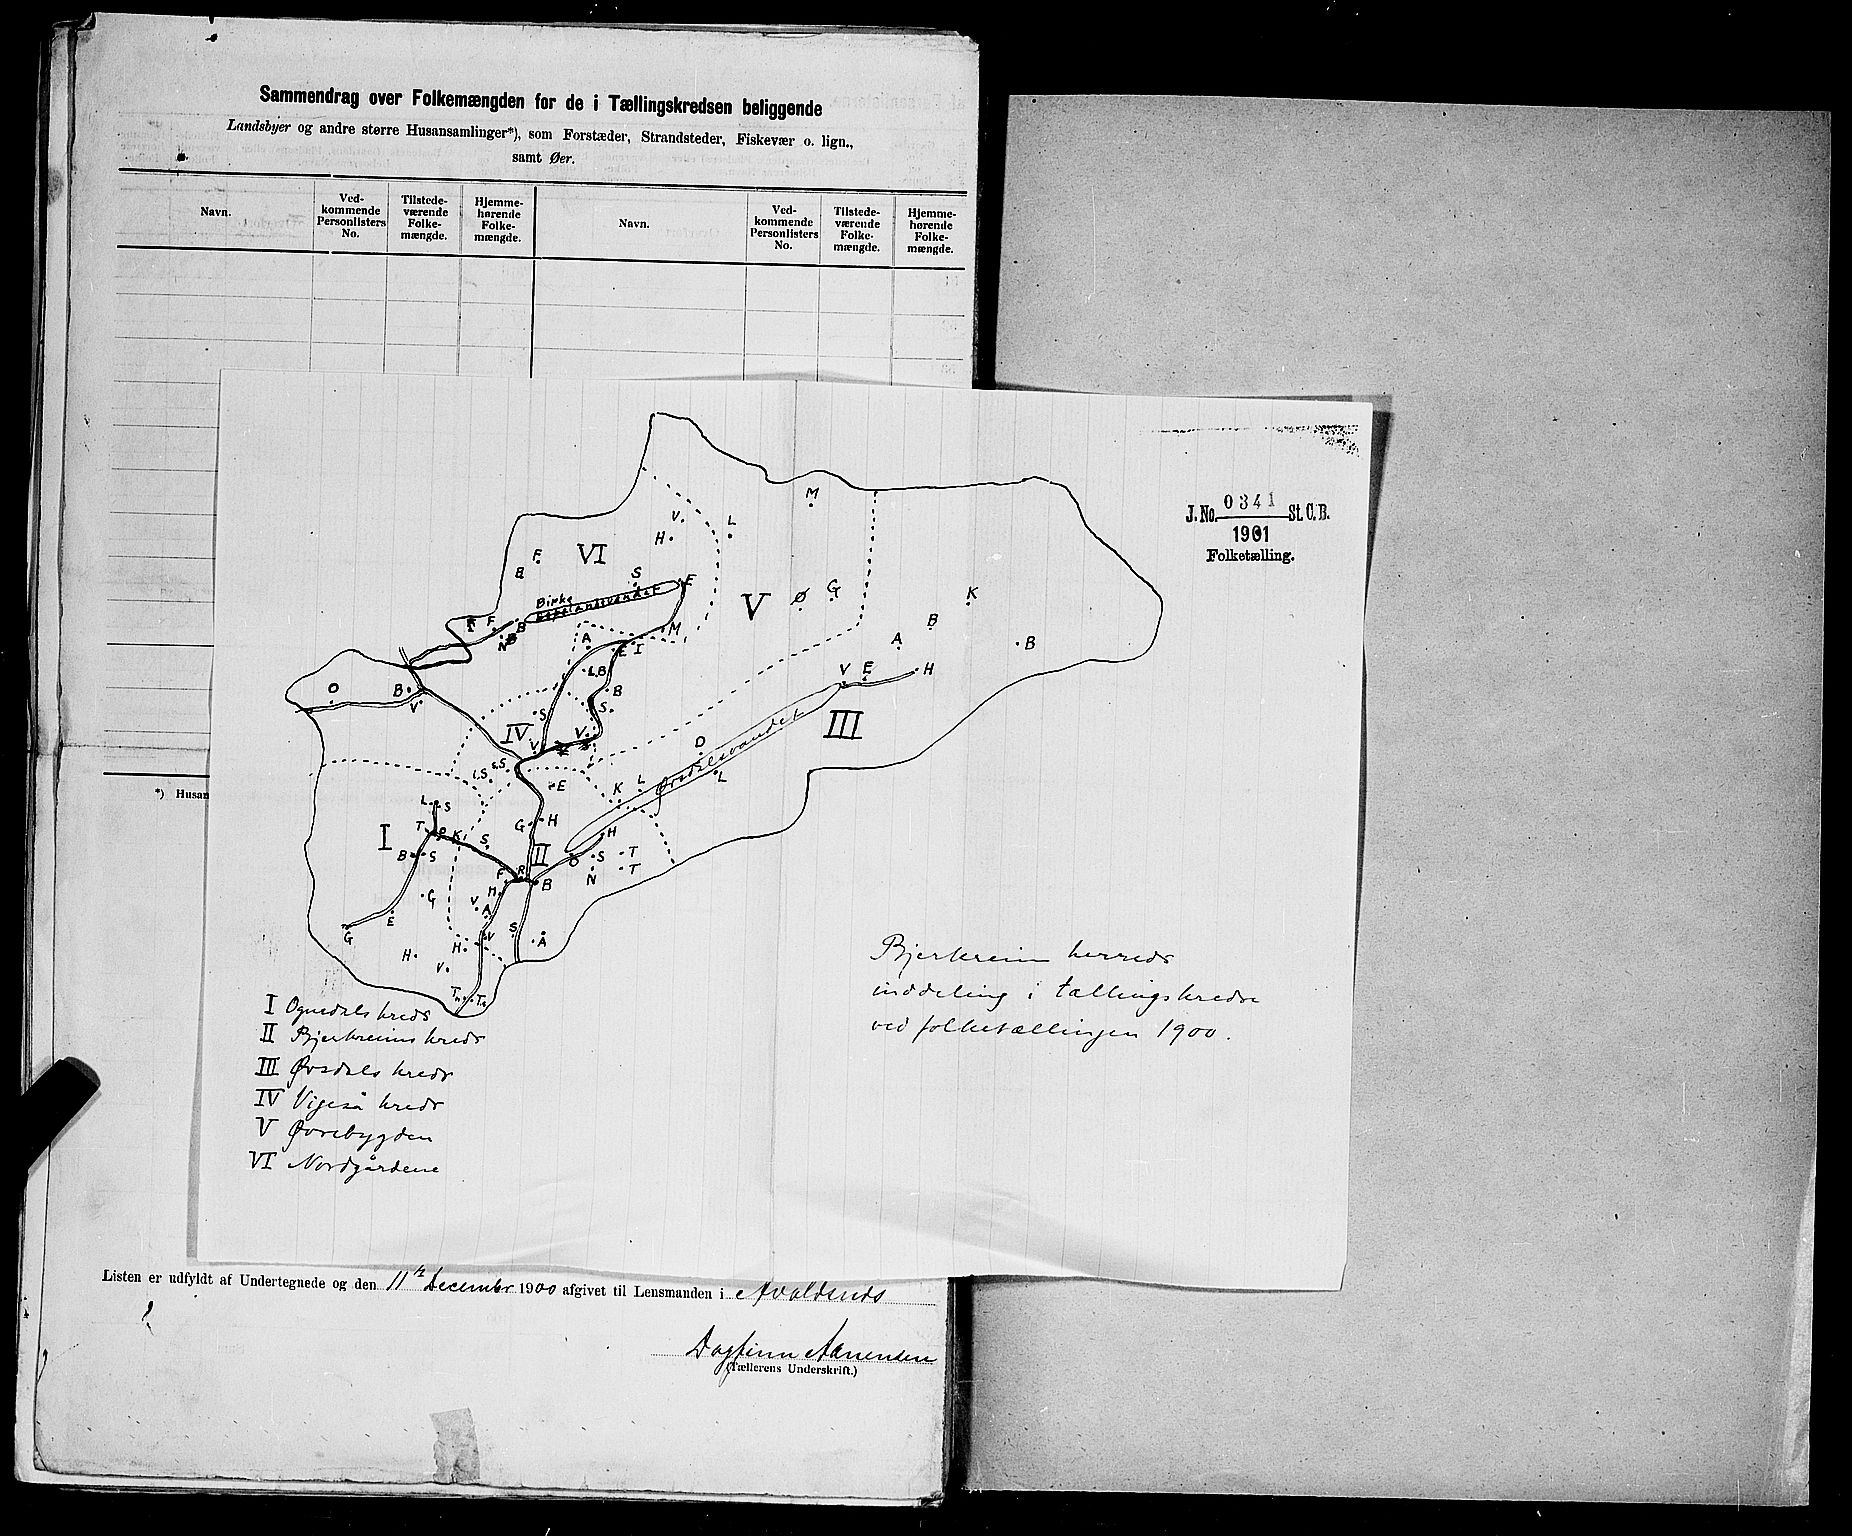 Sammendrag over Folkemængden for de i Tællingskredsen beliggende
Landsbyer og andre større Husansamlinger*), som Forstæder, Strandsteder, Fiskevær o. lign.,
samt Øer.
Navn.
Ved-
kommende
Personlisters
No.
Tilstede-
værende
Folke-
mængde.
Hjemme-
hørende
Folke-
mængde.
Navn.
Ved-
kommende
Personlisters
No.
Tilstede-
værende
Folke-
mængde.
Hjemme-
hørende
Folke-
mængde.
J. No. 0341 St. C. B.
1901
Folketælling.
M
V
L
H
F
VI
B
S
E
Birke
V
Ø
G
K
B
A
B
F
B
N
A
M
E
I
L.B
B
S
V
E
H
O
B
V
S
IV
V
V
III
Ørsdalsvandet
O
L
L
K
I.S
S.S
E
L
S
T
K
S
G
H
I
II
H
B
S
O
S
T
N
T
F
R
B
H
G
V
A
E
G
S
V
A
H
H
V
*) Husan
I Ognedals kreds
II Bjerkreims kreds
III Ørsdals kreds
IV Vigeså kreds
V Øvrebygden
VI Nordgårdene
Bjerkreim herreds
inddeling i tællingskredse
ved folketællingen 1900.
Listen er udfyldt af Undertegnede og den 11te December 1900 afgivet til Lensmanden i Avaldsnds
Dagfinn Aanensen
(Tællerens Underskrift.)